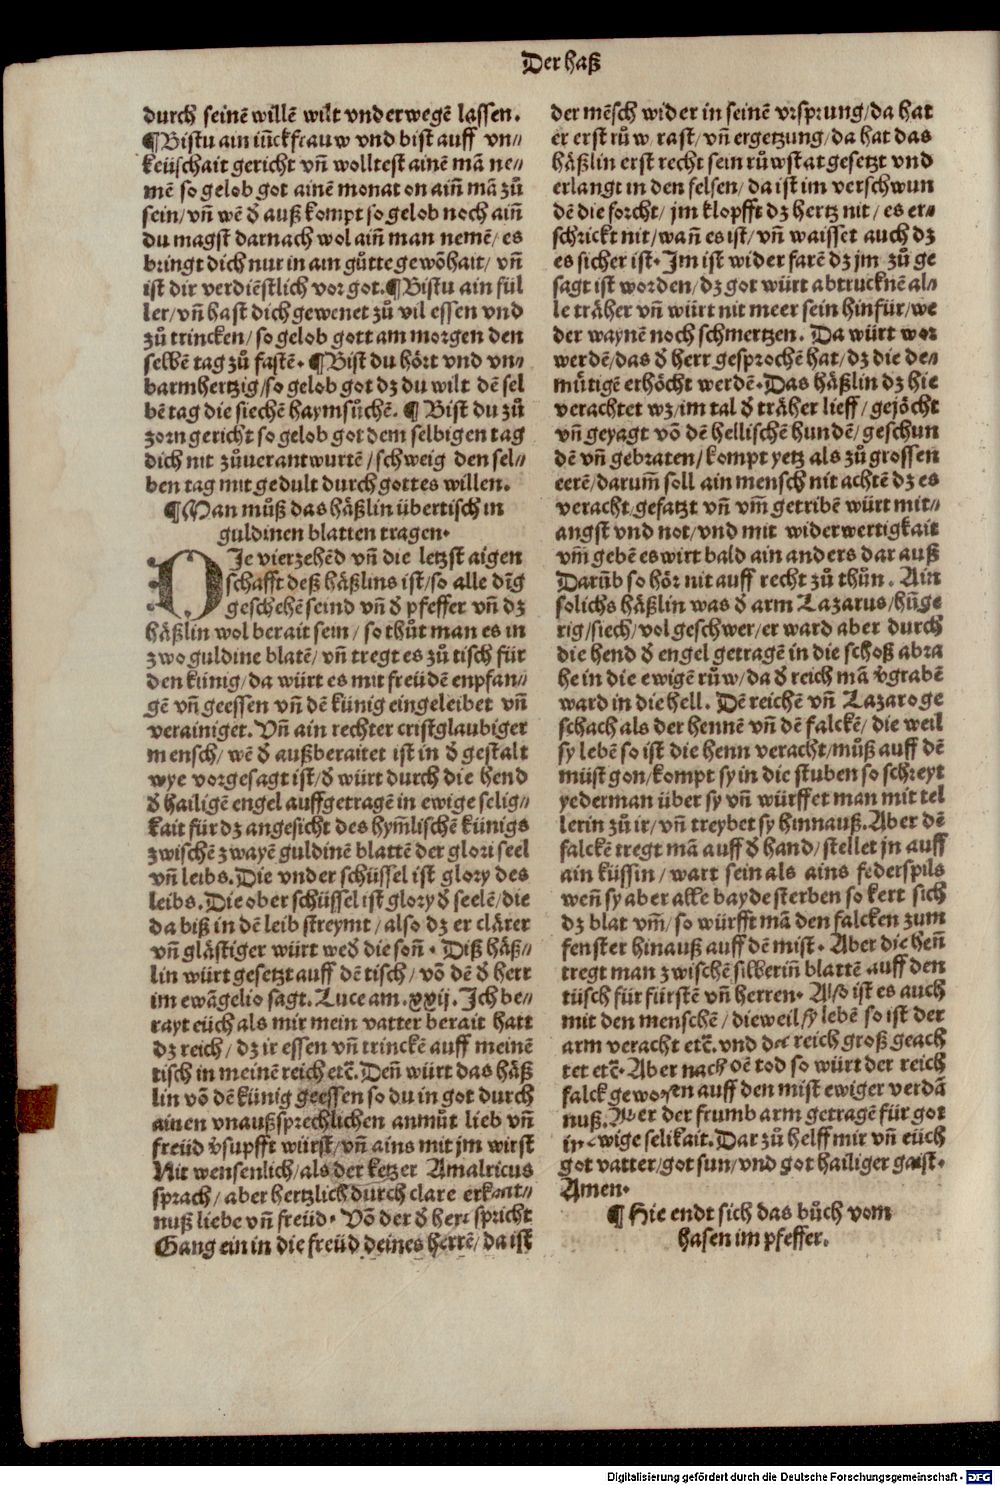 Der haß
durch seinē willē wilt vnderwegē lassen.
¶Bistu ain iūckfrauw vnd bist auff vn⸗
keüschait gericht vñ wolltest ainē mā ne⸗
mē so gelob got ainē monat on aiñ mā zů
sein/ vñ wē d̄ auß kompt so gelob noch aiñ
du magst darnach wol aiñ man nemē/ es
bringt dich nur in ain gůtte gewõhait/ vñ
ist dir verdiēstlich vor got.¶Bistu ain fül
ler/ vñ hast dich gewenet zů vil essen vnd
zů trincken/ so gelob gott am morgen den
selbē tag zů fastē. ¶Bist du hört vnd vn⸗
barmhertzig/so gelob got dz du wilt dē sel
bē tag die siechē haymsůchē. ¶ Bist du zů
zorn gericht so gelob got dem selbigen tag
dich nit zůuerantwurtē/ schweig den sel⸗
ben tag mit gedult durch gottes willen.
¶Man můß das häßlin übertisch in
guldinen blatten tragen.
DIe vierzehēd vñ die letzst aigen
schafft deß häßlins ist/so alle dīg
geschehē seind vñ d̄ pfeffer vñ dz
häßlin wol berait sein/ so thůt man es in
zwo guldine blatē/ vñ tregt es zů tisch für
den künig/da würt es mit freüden enpfan⸗
gē vñ geessen vñ dē künig eingeleibet vñ
verainiget. Vñ ain rechter cristglaubiger
mensch/ wē d̄ außberaitet ist in d̄ gestalt
wye vorgesagt ist/d̄ würt durch die hend
d̄ hailigē engel auffgetragē in ewige selig⸗
kait für dz angesicht des hym̄lischē künigs
zwischē zwayē guldinē blattē der glori seel
vñ leibs. Die vnder schüssel ist glory des
leibs. Die ober schüssel ist glory d̄ seelē/die
da biß in dē leib streymt/ also dz er clärer
vñ glästiger würt wed̄ die soñ. Diß häß⸗
lin würt gesetzt auff dē tisch/ võ dē d̄ herr
im ewāgelio sagt. Luce am. xxij. Ich be⸗
rayt eüch als mir mein vatter berait hatt
dz reich/ dz ir essen vñ trinckē auff meinē
tisch in meinē reich etc̄. Deñ würt das häß
lin võ dē künig geessen so du in got durch
ainen vnaußsprechlichen anmůt lieb vñ
freüd v̄supfft würst/ vñ ains mit jm wirst
Nit wensenlich/als der ketzer Amalricus
sprach/ aber hertzlich durch clare erkant⸗
nuß liebe vñ freüd. Võ der d̄ herr spricht
Gang ein in die freüd deines herrē/ da ist
der mēsch wider in seinē vrsprung/da hat
er erst růw/ rast/ vñ ergetzung/ da hat das
häßlin erst recht sein růwstat gesetzt vnd
erlangt in den felsen/ da ist im verschwun
dē die forcht/ jm klopfft dz hertz nit/ es er⸗
schrickt nit/wañ es ist/ vñ waisset auch dz
es sicher ist. Im ist wider farē dz jm zů ge
sagt ist worden/ dz got würt abtrucknē al⸗
le träher vñ würt nit meer sein hinfür/we
der waynē noch schmertzen. Da würt wor
werdē/das d̄ herr gesprochē hat/ dz die de⸗
můtigē erhöcht werdē. Das häßlin dz hie
verachtet wz/im tal d̄ träher lieff/ gejöcht
vñ geyagt võ dē hellischē hundē/ geschun
dē vñ gebraten/ kompt yetz als zů grossen
eerē/darum̄ soll ain mensch nit achtē dz es
veracht/gesatzt vñ vm̄ getribē würt mit⸗
angst vnd not/ vnd mit widerwertigkait
vm̄ gebē es wirt bald ain anders dar auß
Darūb so hör nit auff recht zů thůn. Ain
solichs häßlin was d̄ arm Lazarus/ hūge
rig/siech/ vol geschwer/er ward aber durch
die hend d̄ engel getragē in die schoß abra
he in die ewigē růw/ da d̄ reich mā v̄grabē
ward in die hell. Dē reichē vñ Lazaro ge
schach als der hennē vñ dē falckē/ die weil
sy lebē so ist die henn veracht/můß auff dē
müst gon/kompt sy in die stuben so schreyt
yederman über sy vñ würffet man mit tel
lerin zů ir/ vñ treybet sy hinnauß. Aber dē
falckē tregt mā auff d̄ hand/ stellet jn auff
ain küssin/ wart sein als ains federspils
weñ sy aber alle bayde sterben so kert sich
dz blat vm̄/ so würfft mā den falcken zum
fenster hinauß auff dē mist. Aber die heñ
tregt man zwischē silberiñ blattē auff den
tüsch für fürstē vñ herren. Also ist es auch
mit den menschē/ dieweil sy lebē so ist der
arm veracht etc̄. vnd der reich groß geach
tet etc̄. Aber nach dē tod so würt der reich
falck geworfen auff den mist ewiger verdā
nuß. Aber der frumb arm getragē für got
in ewige selikait. Dar zů helff mir vñ eüch
got vatter/got sun/vnd got hailiger gaist.
Amen.
¶ Hie endt sich das bůch vom
hasen im pfeffer.
Digitalisierung gefördert durch die Deutsche Forschungsgemeinschaft - DFG